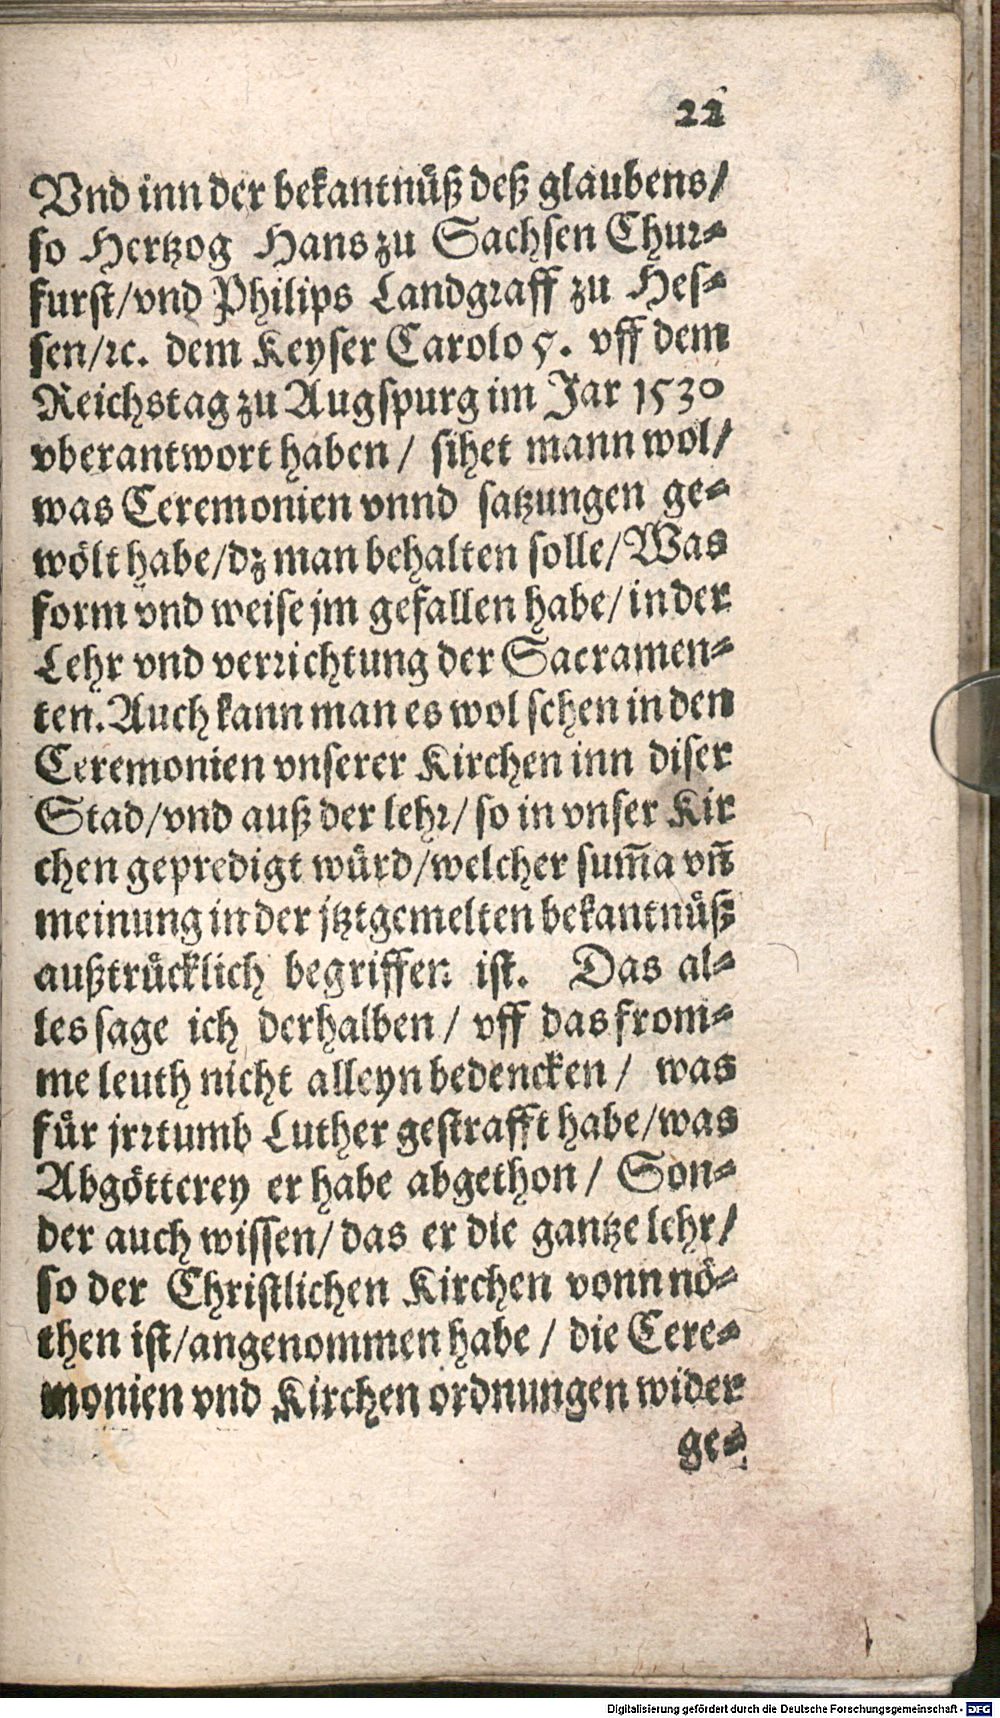 22
Vnd inn der bekantnuͤß deß glaubens/
so Hertzog Hans zu Sachsen Chur⸗
furst/vnd Philips Landgraff zu Hes⸗
sen/ꝛc. dem Keyser Carolo 5. vff dem
Reichstag zu Augspurg im Jar 1530
vberantwort haben/ sihet mann wol/
was Ceremonien vnnd satzungen ge⸗
woͤlt habe/dz man behalten solle/Was
form vnd weise jm gefallen habe/in der
Lehr vnd verrichtung der Sacramen⸗
ten. Auch kann man es wol sehen in den
Ceremonien vnserer Kirchen inn diser
Stad/vnd auß der lehr/so in vnser Kir
chen gepredigt wuͤrd/welcher sum̃a vñ
meinung in der jtztgemelten bekantnuͤß
außtruͤcklich begriffen ist. Das al⸗
les sage ich derhalben/ vff das from⸗
me leuth nicht alleyn bedencken/ was
fuͤr jrrtumb Luther gestrafft habe/was
Abgoͤtterey er habe abgethon/ Son⸗
der auch wissen/das er die gantze lehr/
so der Christlichen Kirchen vonn noͤ⸗
then ist/angenommen habe/ die Cere⸗
monien vnd Kirchen ordnungen wider
ge⸗
Digitalisierung gefördert durch die Deutsche Forschungsgemeinschaft - DFG